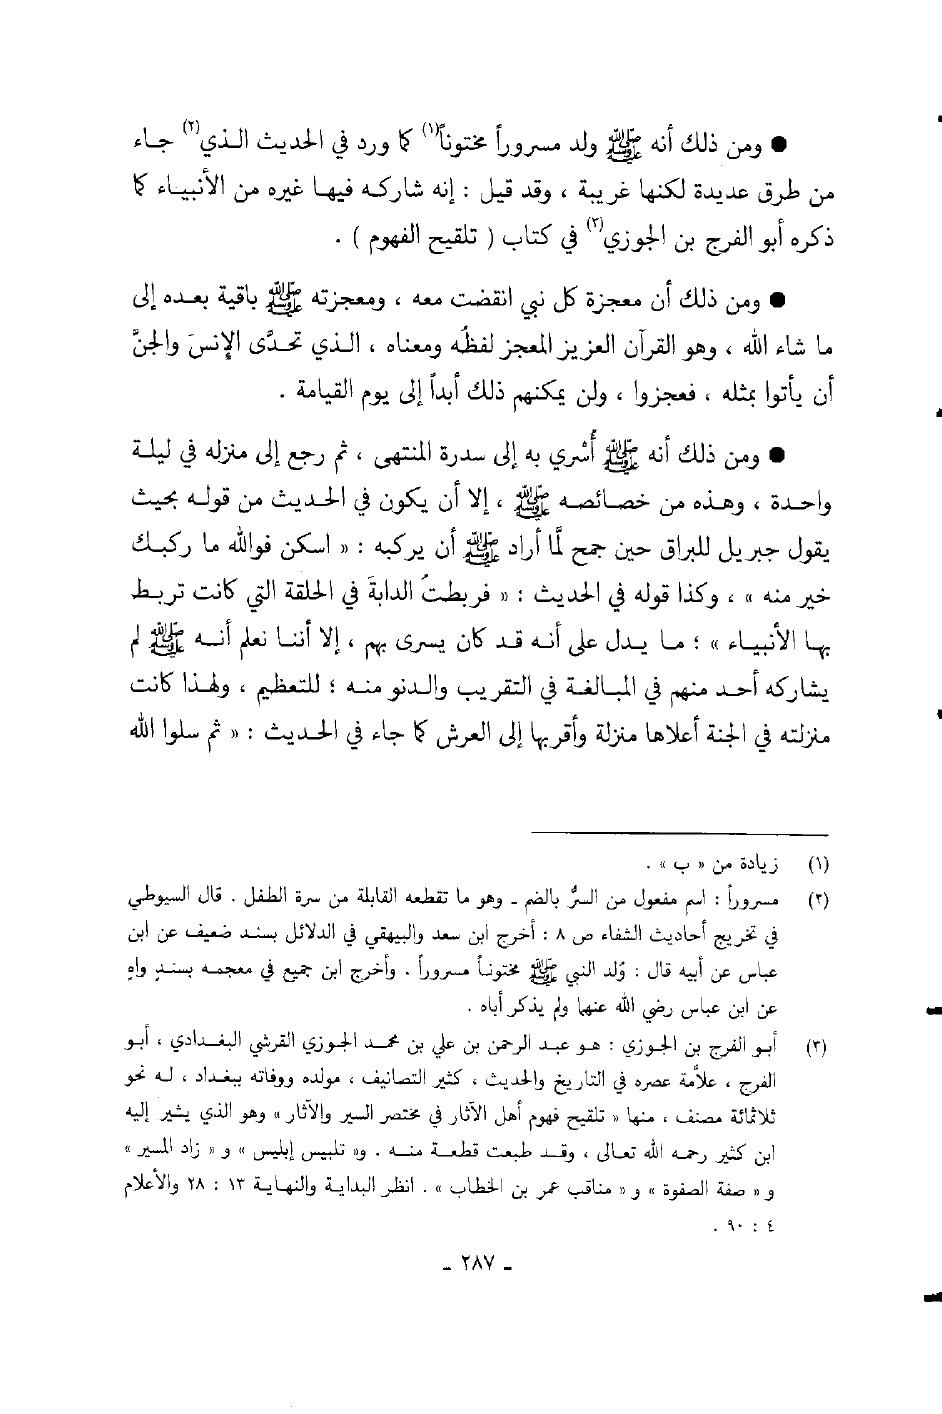 ● ومن ذلك أنه ﷺ ولد مسروراً مختوناً(١) كما ورد في الحديث الـذي(٢) جـاء
من طرق عديدة لكنها غريبة ، وقد قيل : إنه شاركـه فيـهـا غيره من الأنبيـاء كما
ذكره أبو الفرج بن الجوزي(٣) في كتاب ( تلقيح الفهوم ) .
● ومن ذلك أن معجزة كل نبي انقضت معه ، ومعجزته ﷺ باقية بعده إلى
ما شاء الله ، وهو القرآن العزيز المعجز لفظُه ومعناه ، الـذي تحـدَّى الإنسَ والجنَّ
أن يأتوا بمثله ، فعجزوا ، ولن يمكنهم ذلك أبداً إلى يوم القيامة .
● ومن ذلك أنه ﷺ أُسْري به إلى سدرة المنتهى ، ثم رجع إلى منزله في ليلـة
واحـدة ، وهـذه من خصـائصـه ﷺ ، إلا أن يكون في الحـديث من قولـه بحيث
يقول جبريل للبراق حين جمح لمَّا أراد ﷺ أن يركبه : « اسكن فوالله ما ركبـك
خير منه » ، وكذا قوله في الحديث : « فربطتُ الدابةَ في الحلقة التي كانت تربـط
بهـا الأنبيـاء » ؛ مـا يـدل على أنـه قـد كان يسرى بهم ، إلا أننـا نعلم أنـه ﷺ لم
يشاركه أحـد منهم في المبالغـة في التقريب والـدنو منـه ؛ للتعظيم ، ولهـذا كانت
منزلته في الجنة أعلاها منزلة وأقربها إلى العرش كما جاء في الحـديث : « ثم سلوا الله
(١) زيادة من « ب » .
(٢) مسروراً : اسم مفعول من السرُّ بالضم ـ وهو ما تقطعه القابلة من سرة الطفل . قال السيوطي
في تخريج أحاديث الشفاء ص ٨ : أخرج ابن سعد والبيهقي في الدلائل بسنـد ضعيف عن ابن
عباس عن أبيه قال : وُلد النبي ﷺ مختونـاً مسروراً . وأخرج ابن جميع في معجمـه بسنـدٍ واهٍ
عن ابن عباس رضي الله عنهما ولم يذكر أباه .
(٣) أبـو الفرج بن الجـوزي : هـو عبـد الرحمن بن علي بن محمـد الجـوزي القرشي البغـدادي ، أبـو
الفرج ، علاَّمة عصره في التاريخ والحديث ، كثير التصانيف ، مولده ووفاته ببغداد ، لـه نحو
ثلاثمائة مصنف ، منهـا « تلقيح فهوم أهل الآثار في مختصر السير والآثار » وهو الذي يشير إليه
ابن كثير رحمـه الله تعـالى ، وقـد طبعت قطعـة منـه . و« تلبيس إبليس » و « زاد المسير »
و « صفة الصفوة » و « مناقب عمر بن الخطاب » . انظر البداية والنهايـة ١٣ : ٢٨ والأعلام
٤ : ٩٠ .
ـ ٢٨٧ ـ